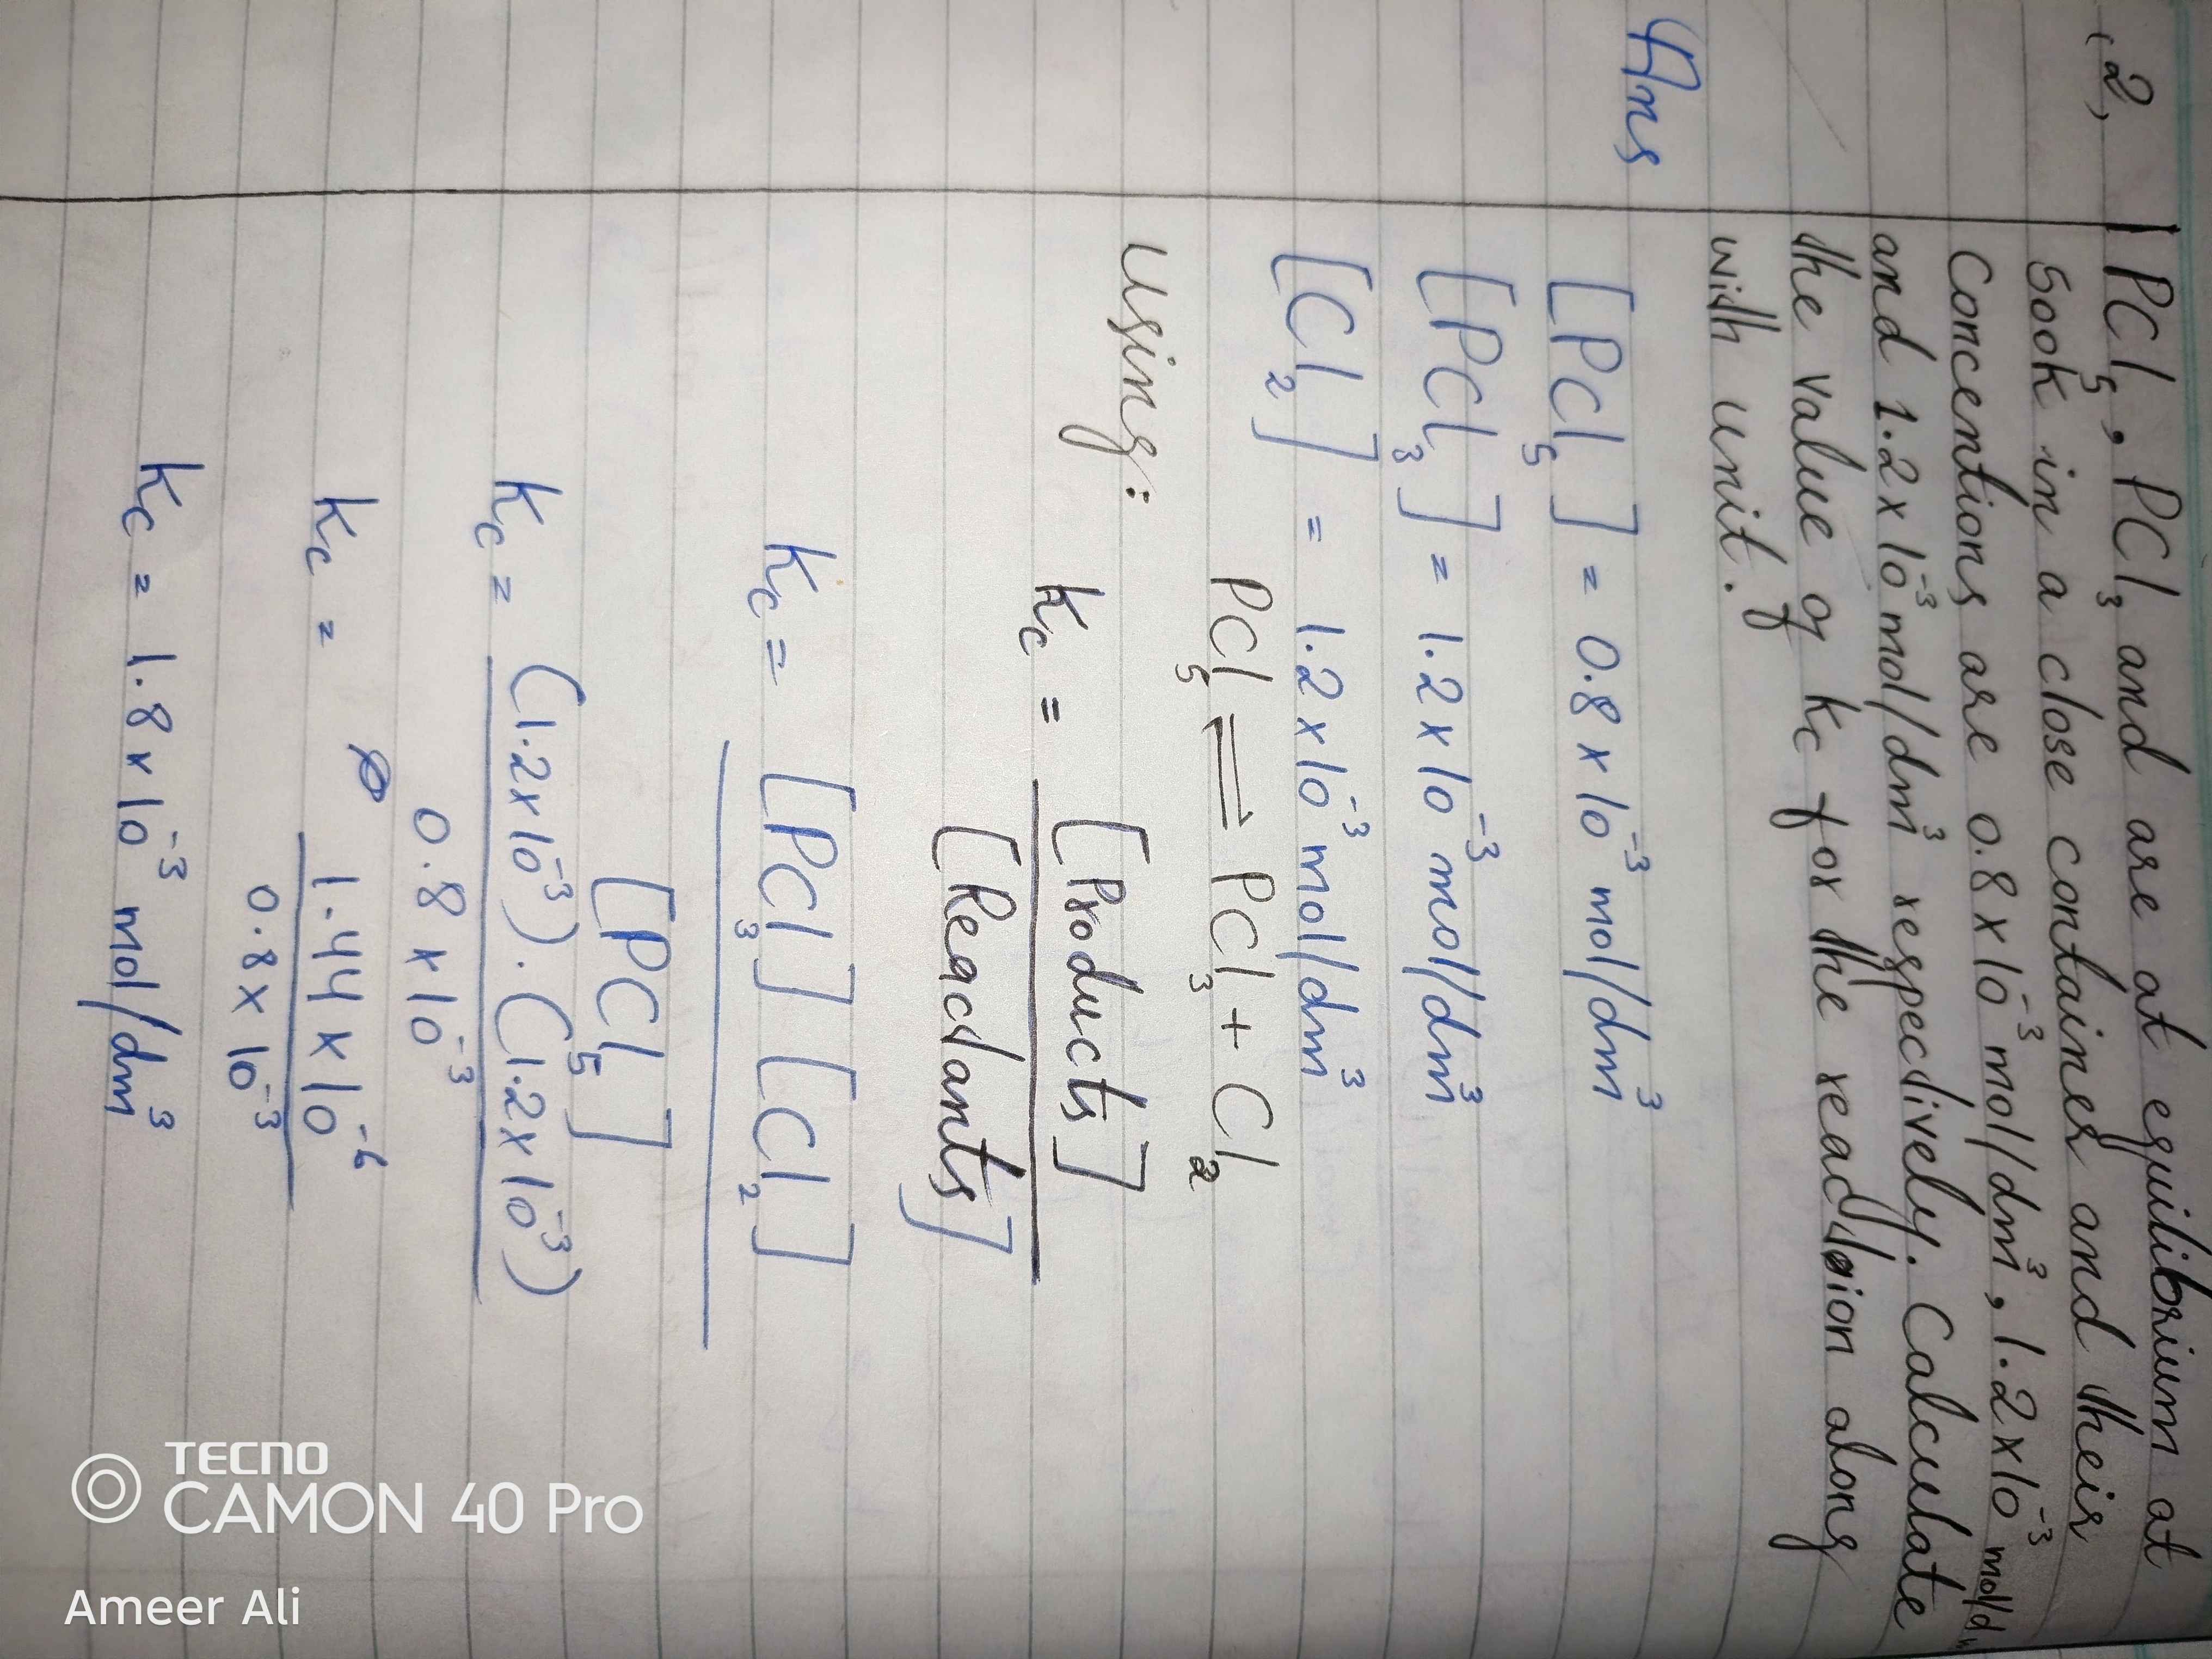 (2) PCl₅, PCl₃ and are at equilibrium at
500K in a close container and their
Concentions are 0.8 x 10⁻³ mol/dm³, 1.2 x 10⁻³
and 1.2 x 10⁻³ mol/dm³ respectively. Calculate
the value of Kc for the reaction along
with unit.
Ans
[PCl₅] = 0.8 x 10⁻³ mol/dm³
[PCl₃] = 1.2 x 10⁻³ mol/dm³
[Cl₂] = 1.2 x 10⁻³ mol/dm³
PCl₅ ⇌ PCl₃ + Cl₂
Using:
Kc = [Products] / [Reactants]
Kc = [PCl₃] [Cl₂] / [PCl₅]
Kc = (1.2 x 10⁻³) . (1.2 x 10⁻³) / 0.8 x 10⁻³
Kc = 1.44 x 10⁻⁶ / 0.8 x 10⁻³
Kc = 1.8 x 10⁻³ mol/dm³
TECNO
CAMON 40 Pro
Ameer Ali